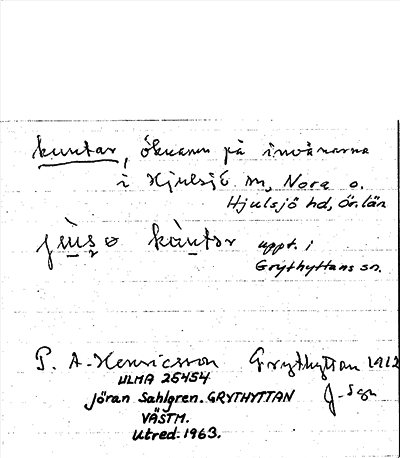 kuntar, öknamn på invånarna
i Hjulsjö sn, Nora o.
Hjulsjö hd, Ör. län
uppt. i
Grythyttans sn.
P. A. Henricsson Grythyttan 1912
ULMA 25454 J-Sgn
Jöran Sahlgren. GRYTHYTTAN
VÄSTM.
Utred. 1963.